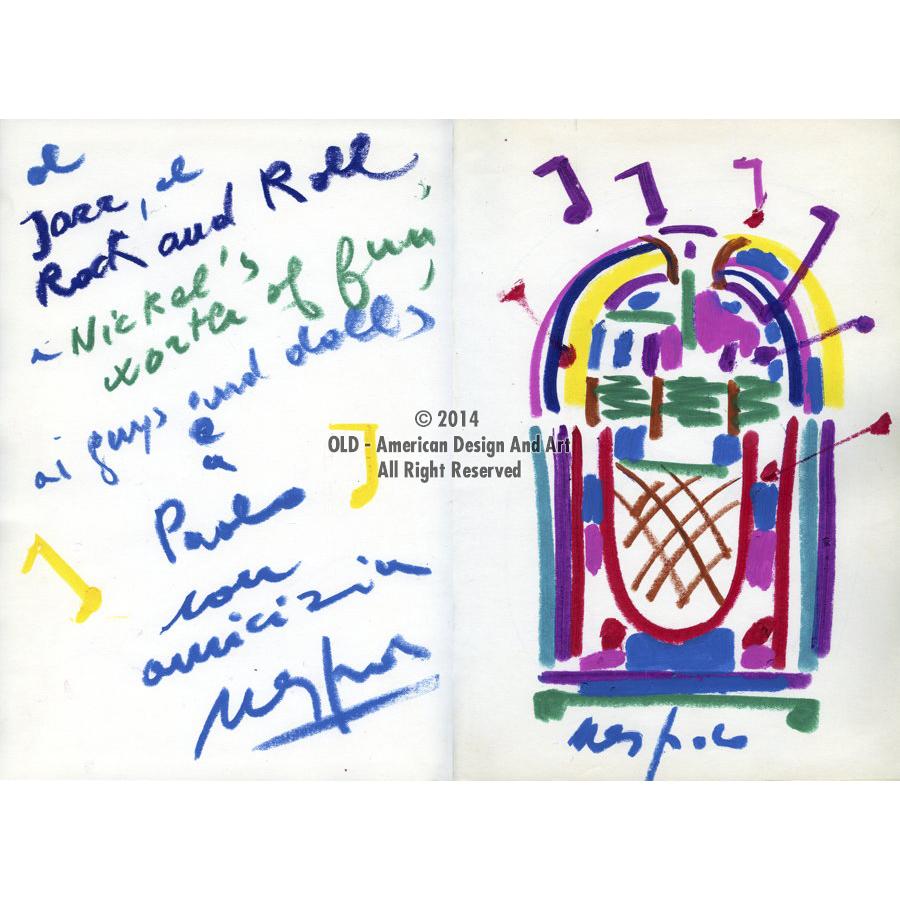 al
Jazz, al
Rock and Roll
ai Nickel's
worth of fun,
ai guys and dolls,
e
a
Paolo
con
amicizia
Nespolo
Nespolo
© 2014
OLD - American Design And Art
All Right Reserved